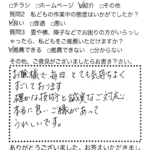 □チラシ □ホームページ ☑紹介 □その他
質問2 私どもの作業中の態度はいかがでしたか?
☑良い □普通 □悪い
質問3 畳や襖、障子などでお困りの方がいらっしゃったら、私どもをご推薦いただけますか?
☑推薦できる □推薦できない □分からない
その他、ご意見がございましたらお書き下さい。
お蔭様で毎日とても気持ちよく
すごしております
確かな技術と誠実なご対応
本当に良いご縁があって
うれしいです。
ありがとうございました。お客さまのお答え